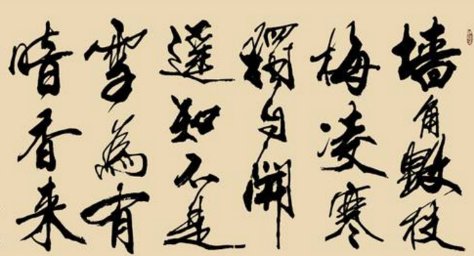 墙角數枝
梅凌寒
獨自開
遥知不是
雪為有
暗香来